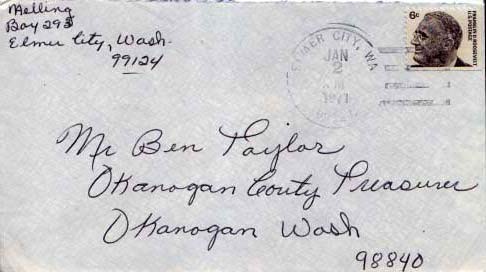 Melling
Box 293
Elmer City, Wash.
99124
ELMER CITY, WA
JAN
2
1971
6c
FRANKLIN D. ROOSEVELT
U.S. POSTAGE
Mr Ben Taylor
Okanogan Couty Treasurer
Okanogan Wash
98840